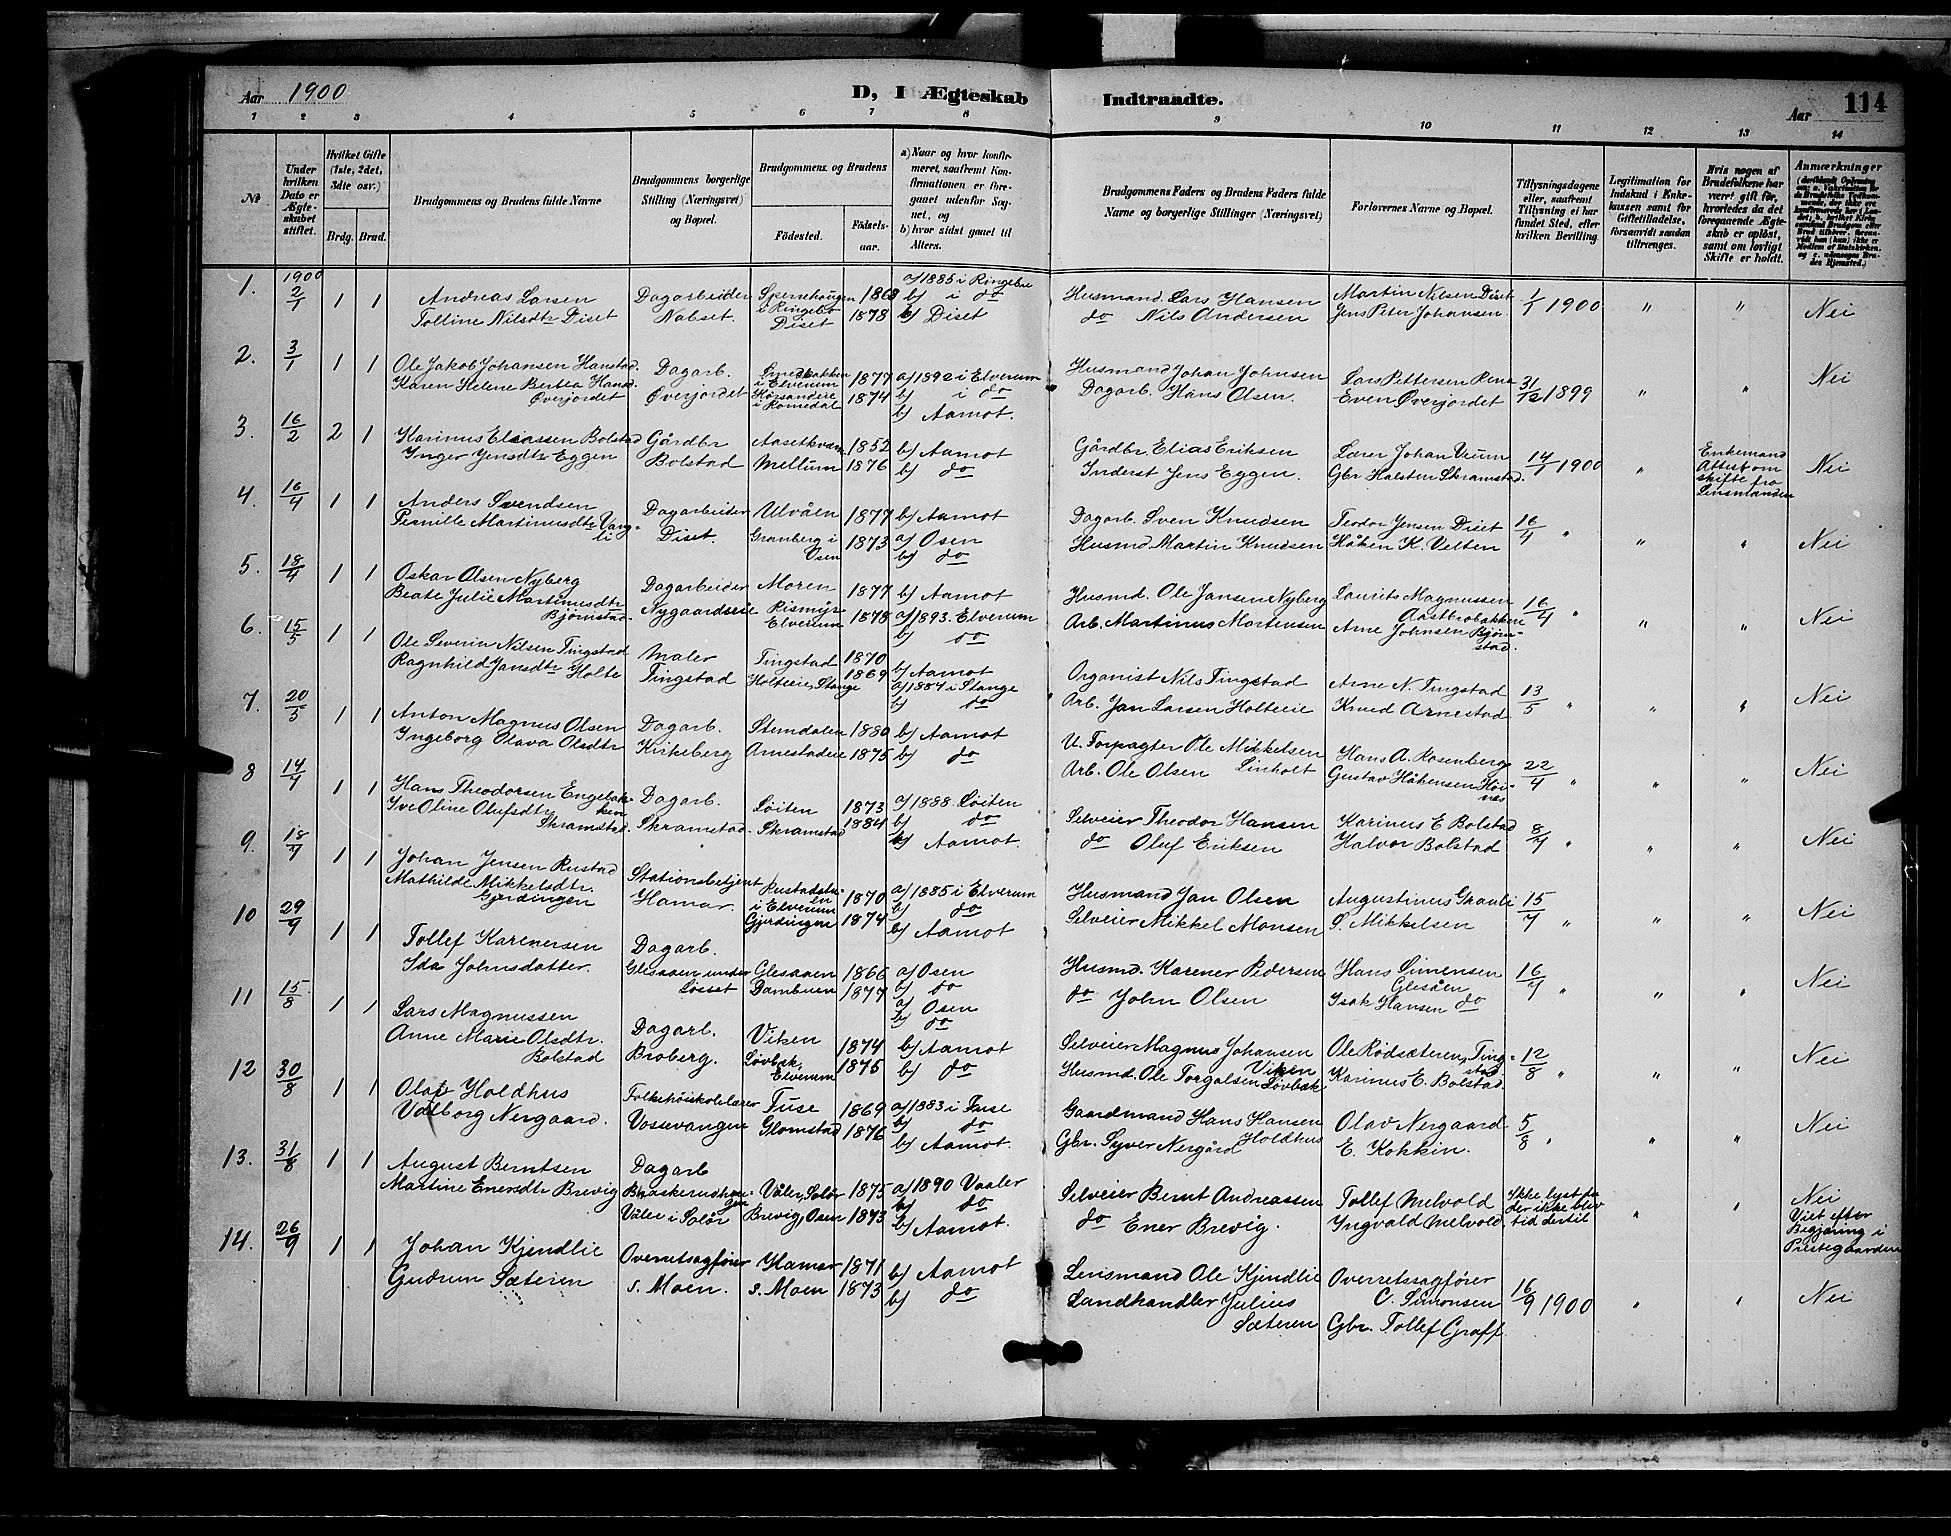 Aar 1900
D, I Ægteskab Indtraadte.
Aar 114
1 2 3 4 5 6 7 8 9 10 11 12 13 14
№
Under hvilken Dato er Ægteskabet stiftet.
Hvilket Gifte (1ste, 2det, 3dte osv.)
Brdg. Brud.
Brudgommens og Brudens fulde Navne
Brudgommens borgerlige Stilling (Næringsvei) og Bopæl.
Brudgommens og Brudens
Fødested.
Fødselsaar.
a) Naar og hvor konfirmeret, saafremt Konfirmationen er foregaaet udenfor Sognet, og
b) hvor sidst gaaet til Alters.
Brudgommens Faders og Brudens Faders fulde Navne og borgerlige Stillinger (Næringsvei)
Forlovernes Navne og Bopæl.
Tillysningsdagene eller, saafremt Tillysning ei har fundet Sted, efter hvilken Bevilling.
Legitimation for Indskud i Enkekassen samt for Giftetilladelse, forsaavidt saadan tiltrænges.
Hvis nogen af Brudefolkene har været gift før, hvorledes da det foregaaende Ægteskab er opløst, samt om lovligt Skifte er holdt.
Anmærkninger
1. 1900 2/1 1 1 Andreas Larsen Dagarbeider Spernehaugen i Ringebo 1868 a/ 1885 i Ringebu b/ i do Husmand Lars Hansen Martin Nilsen Diset 1/1 1900 " " Nei
Tolline Nilsdtr Diset Nabset. Diset 1878 b/ Diset do Nils Andersen Jens Peter Johansen
2. 3/1 1 1 Ole Jakob Johansen Hanstad. Dagarb. Smedbakken i Elverum 1877 a/ 1892 i Elverum b/ i do Husmand Johan Johnsen Lars Pettersen Rena 31/12 1899 " " Nei
Karen Helene Bertea Hansd. Øverjordet Øverjordet Korsandere i Romedal 1874 b/ Aamot. Dagarb. Hans Olsen. Even Øverjordet
3. 16/2 2 1 Karinus Eliassen Bolstad Gårdbr Aasetkvern 1852 b/ Aamot Gårdbr Elias Eriksen Lærer Johan Urum 14/1 1900 " Enkemand Attest om skifte fra Lensmanden Nei
Inger Jensdtr Eggen Bolstad Mellum 1876 b/ do Inderst Jens Eggen. Gbr Halsten Skramstad.
4. 16/4 1 1 Anders Svendsen Dagarbeider Ulvåen 1877 b/ Aamot Dagarb. Sven Knudsen Teodor Jensen Diset 16/4 " " " Nei
Pernille Martinusdtr Vangli Diset. Granberg i Osen 1873 a/ Osen b/ do Husmd. Martin Knudsen Håken K. Velten
5. 18/4 1 1 Oskar Olsen Nyberg Dagarbeider Moren 1877 b/ Aamot Husmd. Ole Jansen Nyberg Laurits Magnussen Aastbrobakken 16/4 " " " Nei
Beate Julie Martinusdtr Bjørnstad. Nygaardseie Rismyr Elverum 1878 a/ 1893. Elverum b/ do Arb. Martinus Mortensen Arne Johnsen Bjørnstad.
6. 15/5 1 1 Ole Severin Nilsen Tingstad Maler Tingstad 1870 b/ Aamot Organist Nils Tingstad Arne N. Tingstad 13/5 " " " Nei
Ragnhild Jansdtr Holte Tingstad Holteeie, Stange 1869 a/ 1884 i Stange b/ do Arb. Jan Larsen Holteeie Knud Arnestad
7. 20/5 1 1 Anton Magnus Olsen Dagarb. Stemdalen 1880 b/ Aamot U. Forpagter Ole Mikkelsen Linholt Hans A. Rosenberg 22/4 " " " Nei
Ingeborg Olava Olsdtr Kirkeberg Arnestadeie 1875 b/ do Arb. Ole Olsen Gustav Håkensen Hovnæs
8 14/7 1 1 Hans Theodorsen Engebakken Dagarb. Løiten 1873 a/ 1888. Løiten b/ do Selveier Theodor Hansen Karinus E Bolstad 8/7 " " " Nei
Ive Oline Olufsdtr Skramstad. Skramstad. Skramstad 1884 b/ Aamot. do Oluf Eriksen Halvor Bolstad
9. 18/7 1 1 Johan Jensen Rustad Stationsbetjent Rustadstuen i Elverum 1870 a/ 1885 i Elverum b/ do Husmand Jan Olsen Augustinus Granli 15/7 " " " Nei
Mathilde Mikkelsdtr. Gjerdingen Hamar. Gjerdingen 1874 b/ Aamot Selveier Mikkel Monsen S. Mikkelsen
10 29/9 1 1 Tollef Karenersen Dagarb. Glesaaen under Løsset Glesaaen 1866 a/ Osen b/ do Husmd. Karener Pedersen Hans Simensen Glesåen 16/7 " " " Nei
Ida Johnsdatter. Dambuen 1877 a/ Osen b/ do do John Olsen Isak Hansen do
11 15/8 1 1 Lars Magnussen Dagarb. Viken 1874 b/ Aamot Selveier Magnus Johansen Viken Ole Rødsæteren, Tingstad 12/8 " " " Nei
Anne Marie Olsdtr. Bolstad Broberg. Løvbæk, Elverum 1875 b/ do Husmd. Ole Torgalsen Løvbæk Karinus E. Bolstad.
12 30/8 1 1 Olav Holdhus Folkehøiskolelærer Fuse 1869 a/ 1883 i Fuse b/ do Gaardmand Hans Hansen Holdhus Olav Nergaard 5/8 " " " Nei
Valborg Nergaard. Vossevangen Glomstad 1876 b/ Aamot. Gbr. Syver Nergård E. Kokkin.
13. 31/8 1 1 August Berntsen Dagarb Våler, Solør 1875 a/ 1890 Vaaler b/ do Selveier Bernt Andreassen Tollef Melvold Ikke lyst fra der ikke blev tid dertil " " Nei
Martine Enersdtr Brevig Våler i Solør Brevig, Osen 1873 b/ Aamot. do Ener Brevig. Yngvald Melvold, Viet efter Begjæring i Prestegaarden
14. 26/9 1 1 Johan Kjendlie Overretssagfører Hamar 1871 b/ Aamot Lensmand Ole Kjendlie Overretssagfører C. Simonsen 16/9 1900 " " Nei
Gudrun Sæteren s. Moen. s. Moen 1873 b/ do Landhandler Julius Sæteren Gbr. Tollef Graff